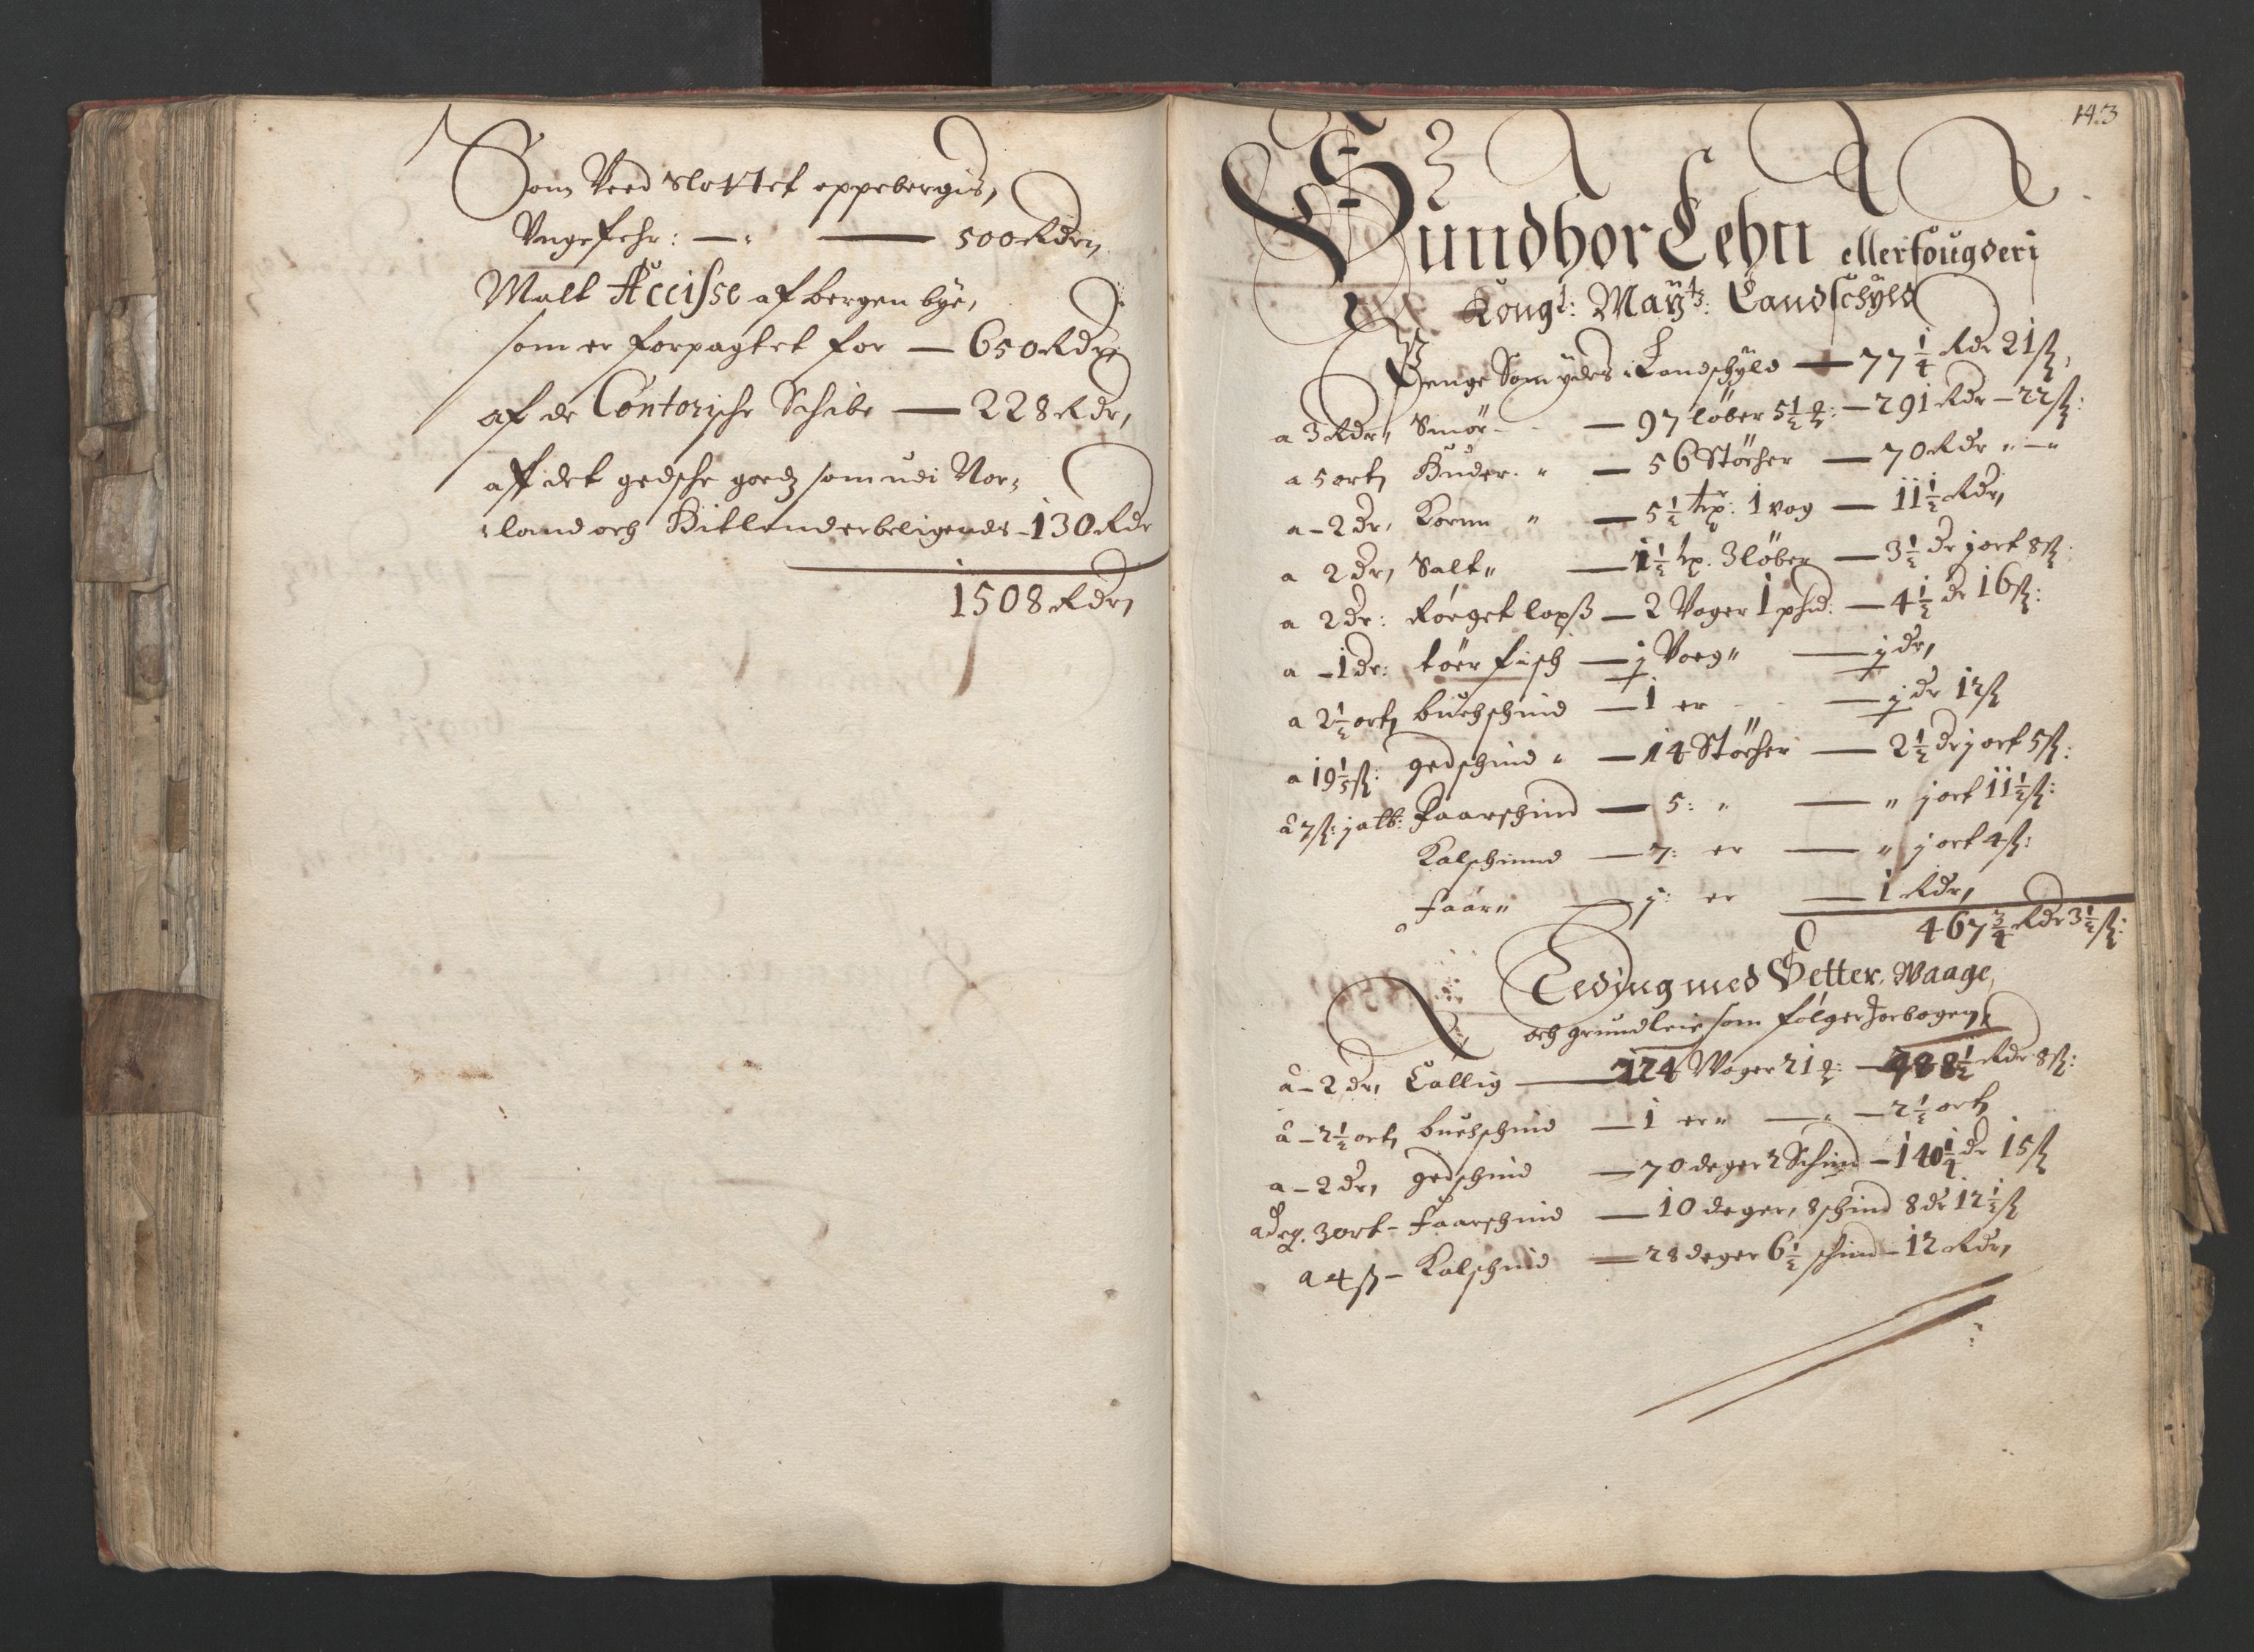 Som Veed Slottet oppebergis,
Ungefehr: — 500 Rdr,
Malt Accisse af bergen bye,
som er forpagtet for — 650 Rdr,
af de Contorische Schibe — 228 Rdr,
aff det gedsche goedz som udi Nor-
land och Hitlund erbeligends — 130 Rdr
1508 Rdr,
143
Sundhor Lehn eller fougderi
Kongl: Maytz: Landschyld
Penge Som ydes i Landschyld — 77 1/4 Rdr 21 ß,
a 3 Rdr, Smör — 97 löber 5 1/2 — 291 Rdr — 22 ß:
a 5 ort, Huder — 56 Störher — 70 Rdr
a - 2 dr, Kornn — 5 1/2 tp: 1 vog — 11 1/2 Rdr,
a 2 dr, Salt — 1 1/2 tp. 3 löber — 3 1/2 dr j ort 8 ß:
a 2 dr: — 2 Voger 1 phd: — 4 1/2 dr 16 ß:
a - 1 dr: töer fisch — j Voeg — j dr,
a 2 1/2 ort, buchschind — 1 er — j dr 12 ß
a 19 1/5 ß: gedschind — 14 Störher — 2 1/2 dr j ort 5 ß:
a 7 ß: j alb: Faarschind — 5: — j ort 11 1/2 ß:
Kalschinnd — 7: er — j ort 4 ß:
faar — j: er — 1 Rdr,
467 3/4 Rdr 3 1/2 ß:
Leding med Setter, Waage,
och grundleie som følger Jorbogen,
a - 2 dr, Lallig — 224 Woger 21 — 488 1/2 Rdr 8 ß:
a - 2 1/2 ort, buchschind — 1 er — 2 1/2 ort,
a - 2 dr, gedschind — 70 deger 2 Schind — 140 1/4 dr 15 ß
a deg. 3 ort - faarschind — 10 deger, 8 schind 8 dr 12 1/2 ß
a 4 ß - Kalschind — 28 deger 6 1/2 schind — 12 Rdr,